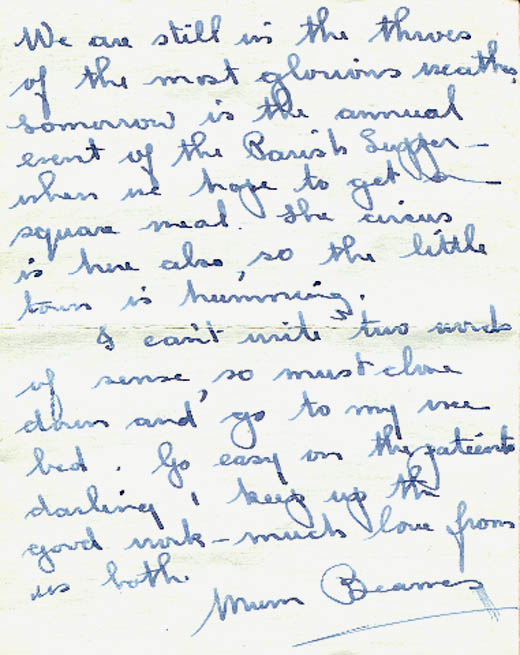 We are still in the throes
of the most glorious weather,
tomorrow is the annual
event of the Parish Supper –
when we hope to get a
square meal. The circus
is here also, so the little
town is humming.
I can't write two words
of sense, so must close
down and go to my wee
bed. Go easy on the patients
darling, keep up the
good work – much love from
us both.
Mum Beames